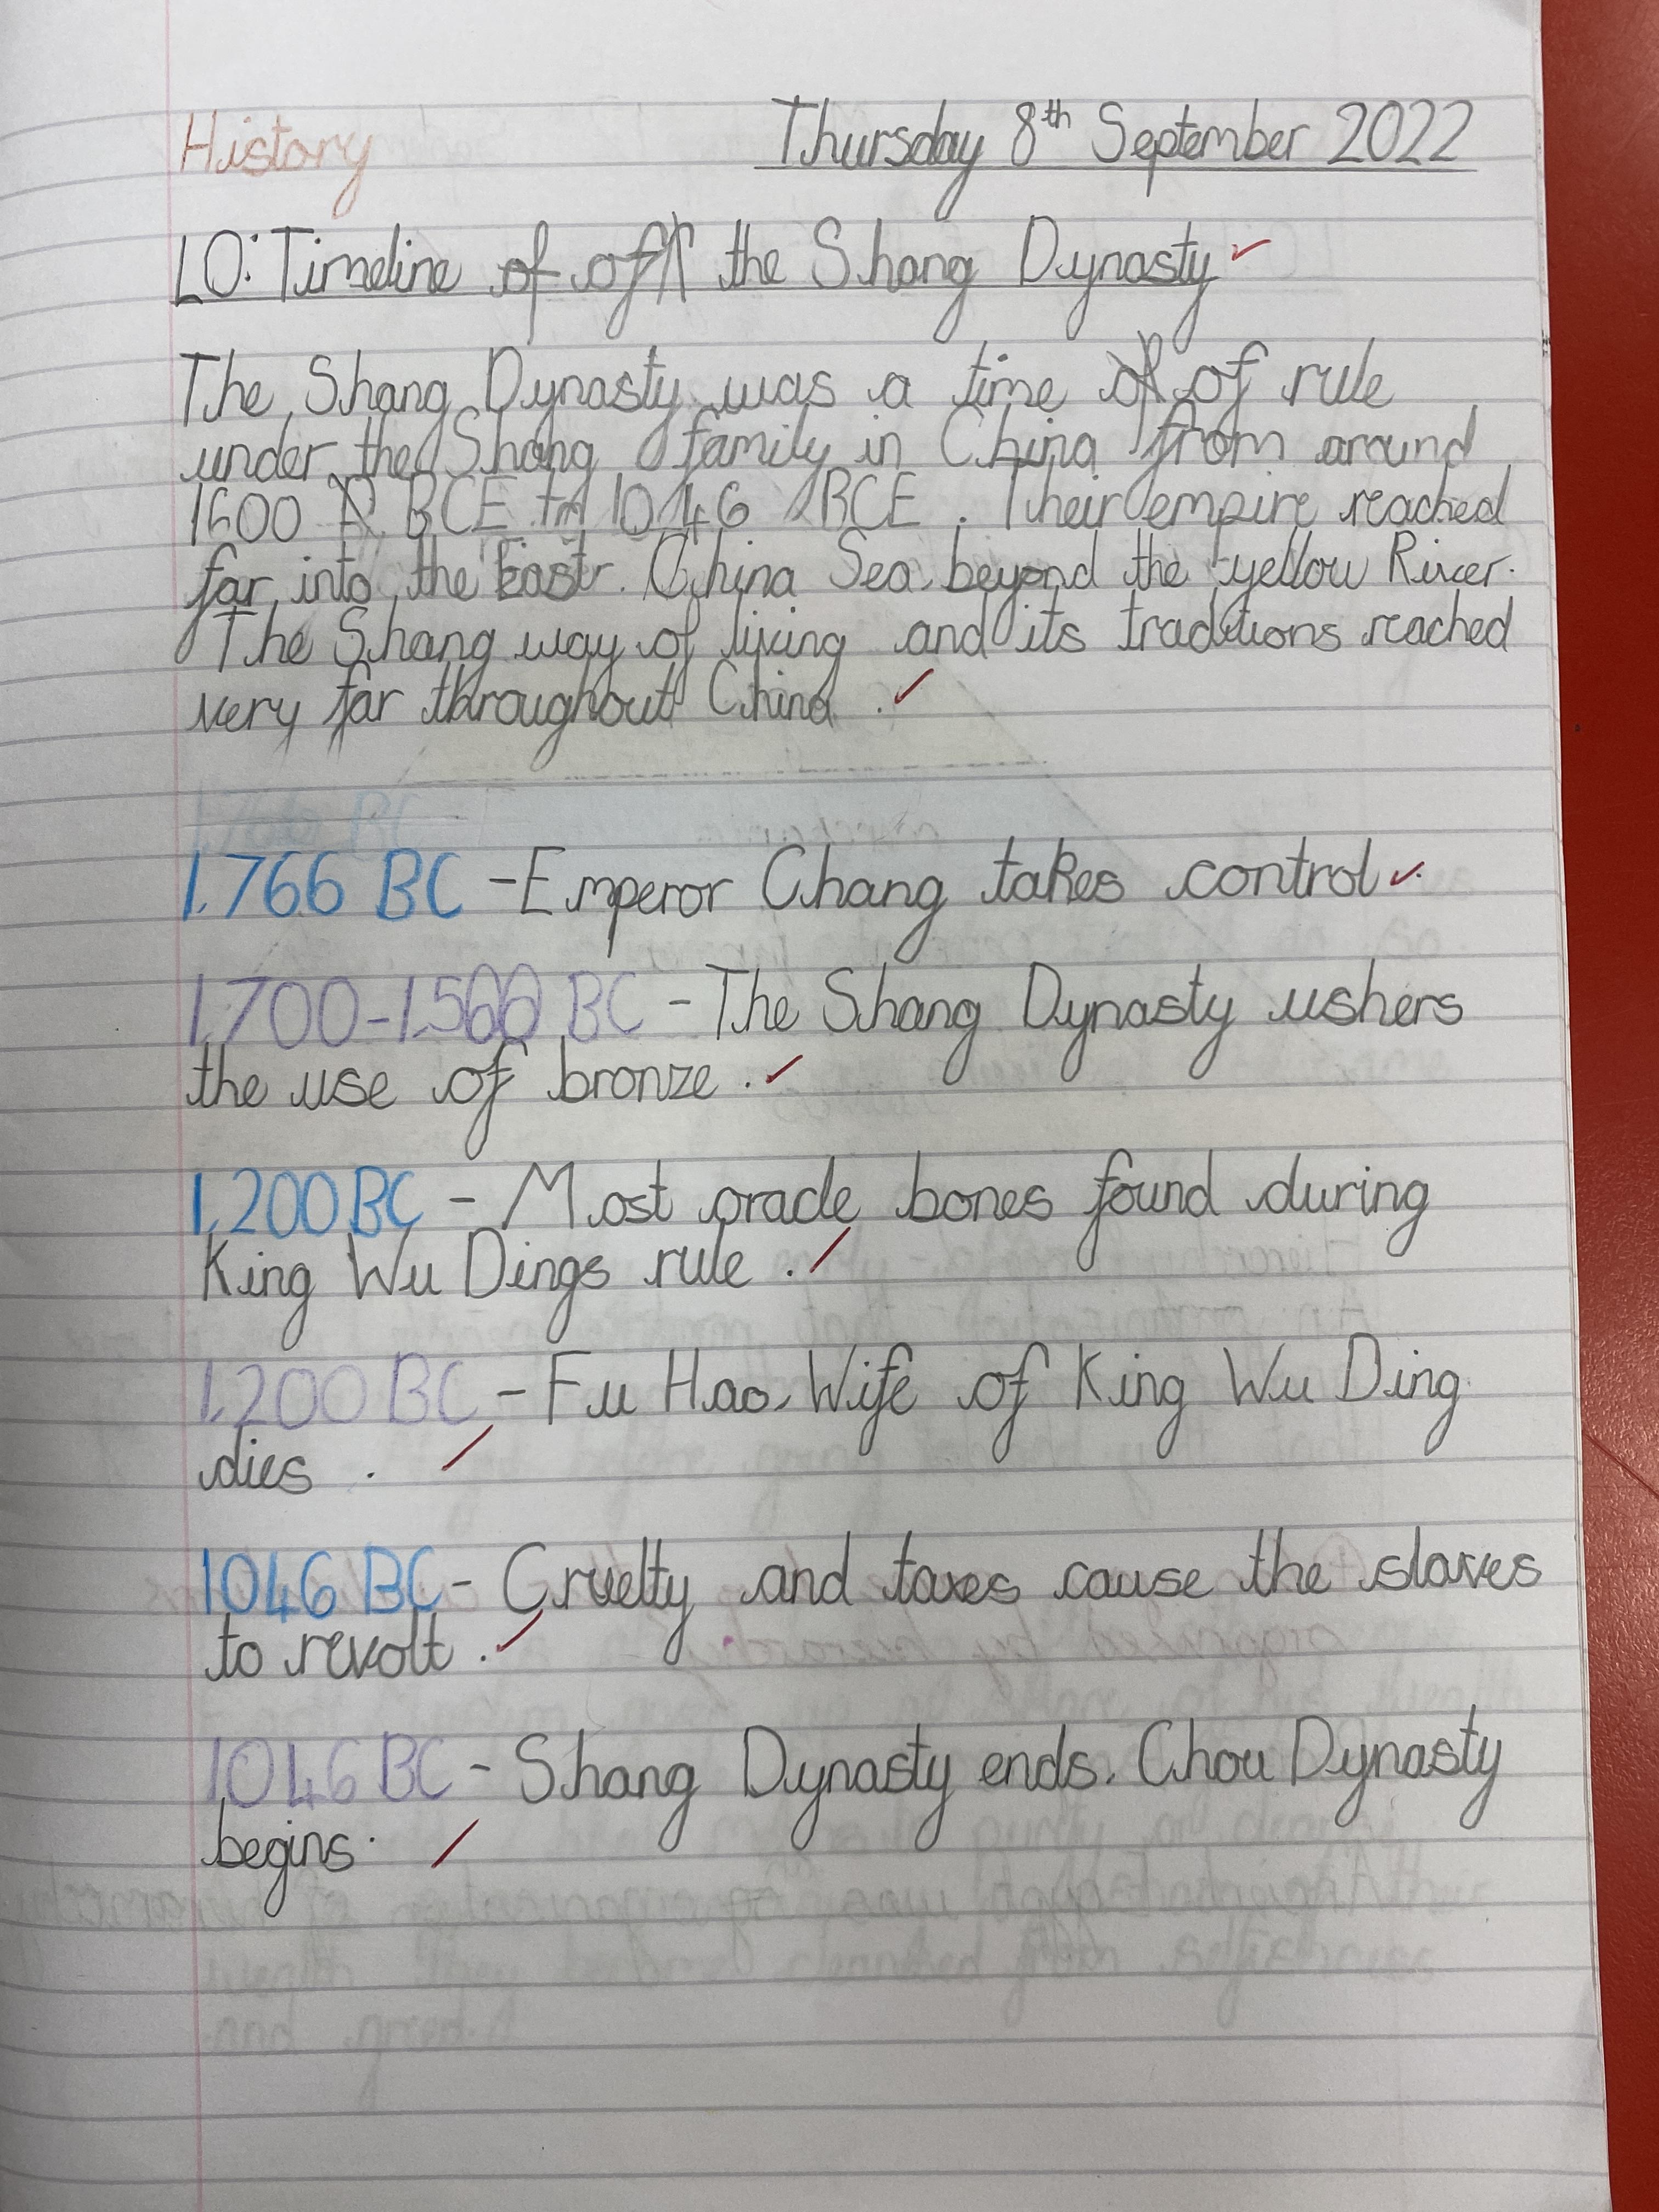 History Thursday 8th September 2022
LO: Timeline of of the Shang Dynasty
The Shang Dynasty was a time of of rule
under the Shang family in China from around
1600 BCE to 1046 BCE. Their empire reached
far into the East. China Sea beyond the yellow River.
The Shang way of living and its traditions reached
very far throughout China.
1,766 BC
1,766 BC - Emperor Chang takes control
1,700-1,500 BC - The Shang Dynasty ushers
the use of bronze.
1,200 BC - Most oracle bones found during
King Wu Dings rule.
1,200 BC - Fu Hao, Wife of King Wu Ding
dies.
1046 BC - Cruelty and taxes cause the slaves
to revolt.
1046 BC - Shang Dynasty ends. Chou Dynasty
begins.